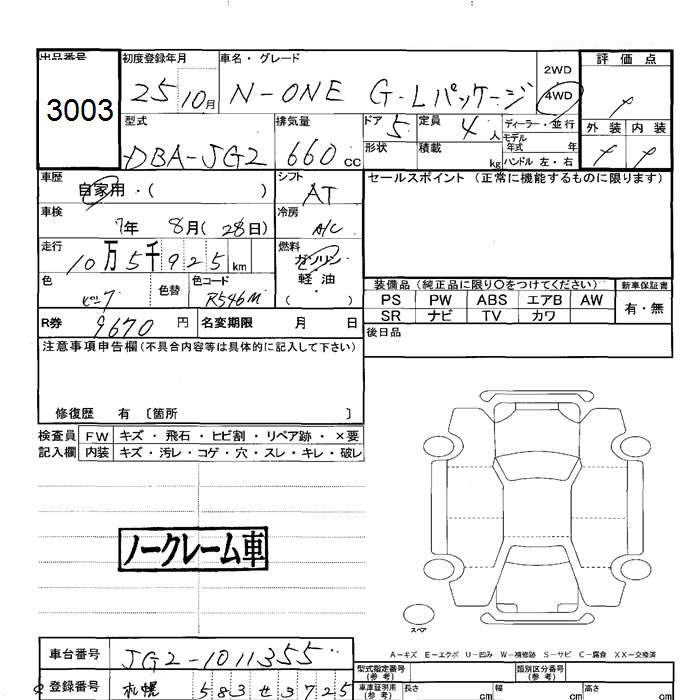 出品番号 初度登録年月 車名・グレード 評価点
3003 25 10月 N-ONE G・Lパッケージ 2WD 4WD
型式 排気量 ドア 定員 ディーラー・並行 外装 内装
DBA-JG2 660cc 5 4人 モデル年式 年
形状 積載 kg ハンドル 左・右
車歴 自家用・( ) シフト AT セールスポイント (正常に機能するものに限ります)
車検 年 8月(28日) 冷房 A/C
走行 10万5千925km 燃料 ガソリン
軽油
( )
色 ピンク 色替 色コード R546M
装備品 (純正品に限り○をつけてください) 新車保証書
PS PW ABS エアB AW 有・無
SR ナビ TV カワ
R券 9670円 名変期限 月 日 後日品
注意事項申告欄(不具合内容等は具体的に記入して下さい)
修復歴 有 〔箇所 〕
検査員 FW キズ・飛石・ヒビ割・リペア跡・×要
記入欄 内装 キズ・汚レ・コゲ・穴・スレ・キレ・破レ
ノークレーム車
スペア
A-キズ E-エクボ U-凹み W-補修跡 S-サビ C-腐食 XX-交換済
車台番号 JG2-1011355
型式指定番号(参考) 類別区分番号(参考)
登録番号 札幌 583 せ 3725
車庫証明用(参考) 長さ cm 幅 cm 高さ cm